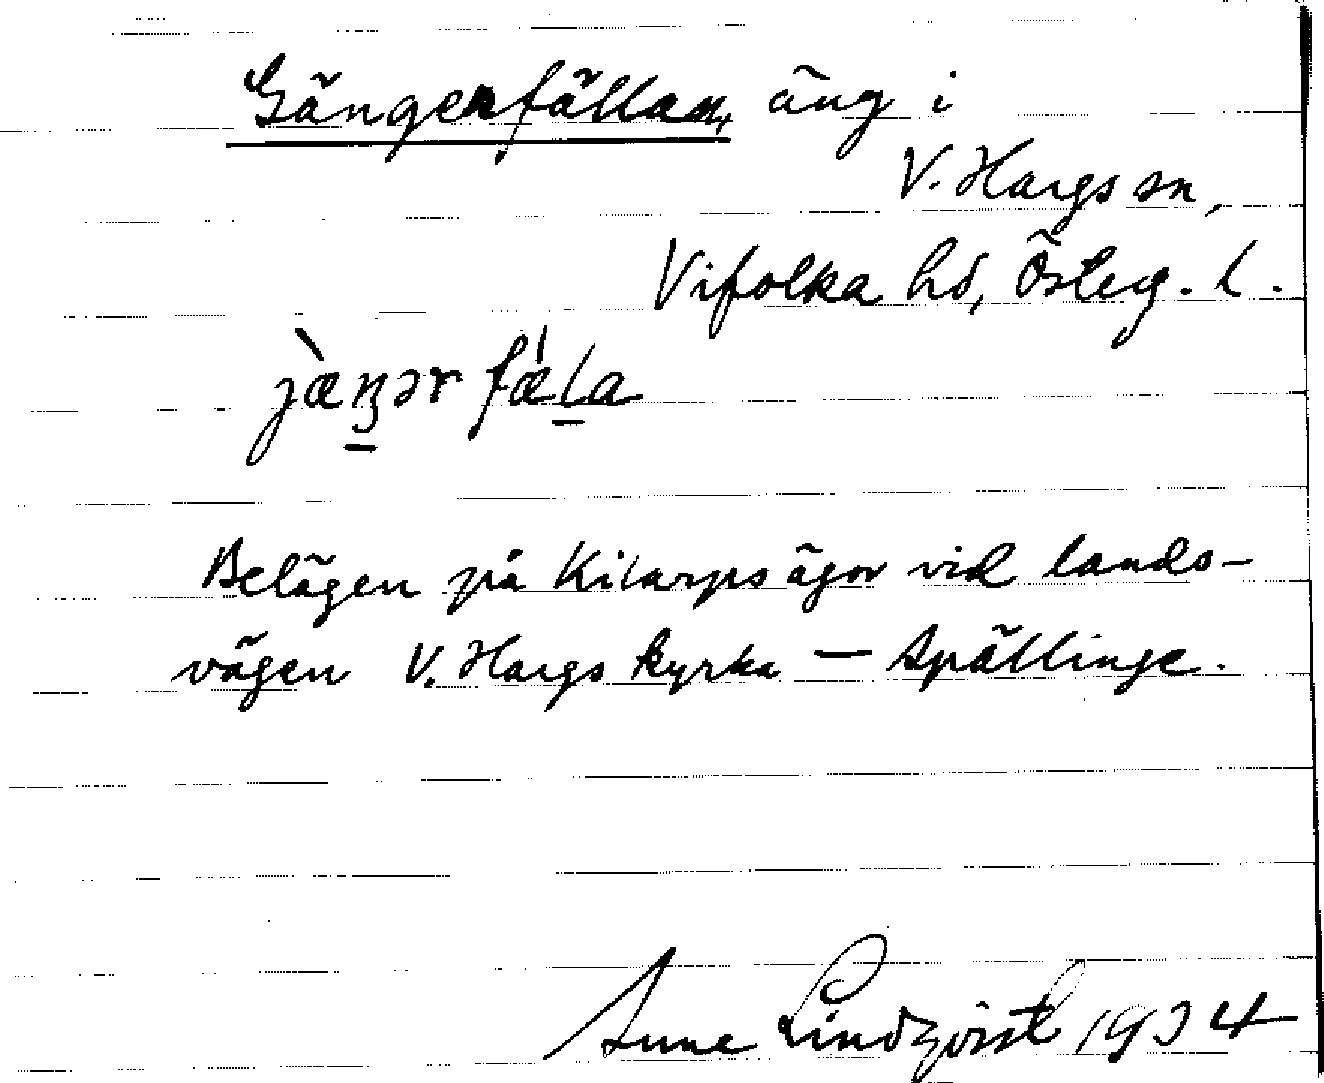 Gängerfällan, äng i
V. Hargs sn,
Vifolka hd, Österg. l.
jæ̀ŋər fǽla
Belägen på Kilarps ägor vid lands-
vägen V. Hargs kyrka — Spällinge.
Sune Lindqvist 1934